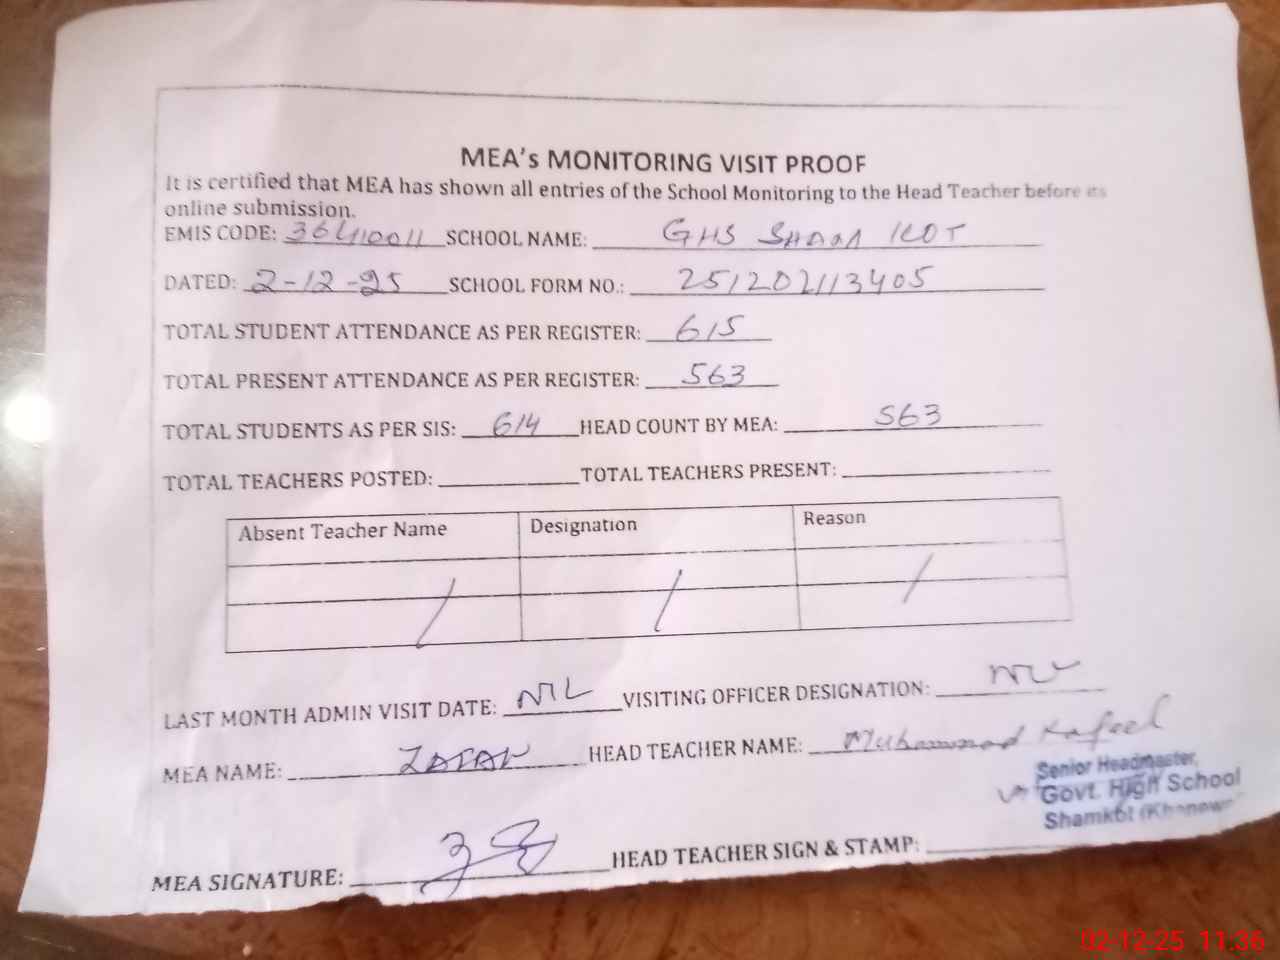 MEA's MONITORING VISIT PROOF
It is certified that MEA has shown all entries of the School Monitoring to the Head Teacher before its
online submission.
EMIS CODE: 36410011 SCHOOL NAME: GHS SHAM KOT
DATED: 2-12-25 SCHOOL FORM NO.: 251202113405
TOTAL STUDENT ATTENDANCE AS PER REGISTER: 615
TOTAL PRESENT ATTENDANCE AS PER REGISTER: 563
TOTAL STUDENTS AS PER SIS: 614 HEAD COUNT BY MEA: 563
TOTAL TEACHERS POSTED: TOTAL TEACHERS PRESENT:
Absent Teacher Name Designation Reason
/ / /
LAST MONTH ADMIN VISIT DATE: NIL VISITING OFFICER DESIGNATION: NIL
MEA NAME: ZAFAR HEAD TEACHER NAME: Muhammad Kafeel
Senior Headmaster,
Govt. High School
Shamkot
MEA SIGNATURE: HEAD TEACHER SIGN & STAMP:
02-12-25 11:36